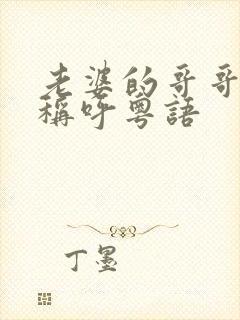 老婆的哥哥
稱呼粵語
丁墨